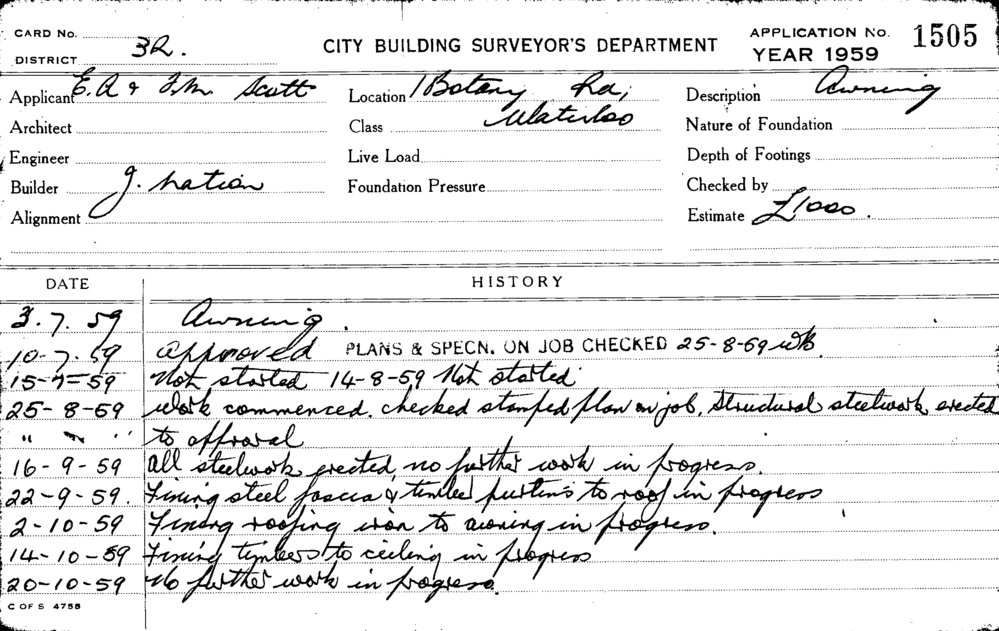 CARD No.
DISTRICT 3R.
CITY BUILDING SURVEYOR'S DEPARTMENT
APPLICATION No. 1505
YEAR 1959
Applicant E.A & F.M. Scott
Location 1 Botany Rd,
Description Awning
Architect
Class Waterloo
Nature of Foundation
Engineer
Live Load
Depth of Footings
Builder J. Nation
Foundation Pressure
Checked by
Alignment
Estimate £1000.
DATE HISTORY
3.7.59 Awning.
10-7.59 Approved PLANS & SPECN. ON JOB CHECKED 25-8-59
15-7-59 Not started 14-8-59 Not started
25-8-59 Work commenced. checked stamped plan on job, Structural steelwork erected
" " " to approval
16-9-59 All steelwork erected no further work in progress.
22-9-59. Fixing steel fascia & timber purlins to roof in progress
2-10-59 Fixing roofing iron to awning in progress.
14-10-59 Fixing timbers to ceiling in progress
20-10-59 No further work in progress.
C OF S 4758